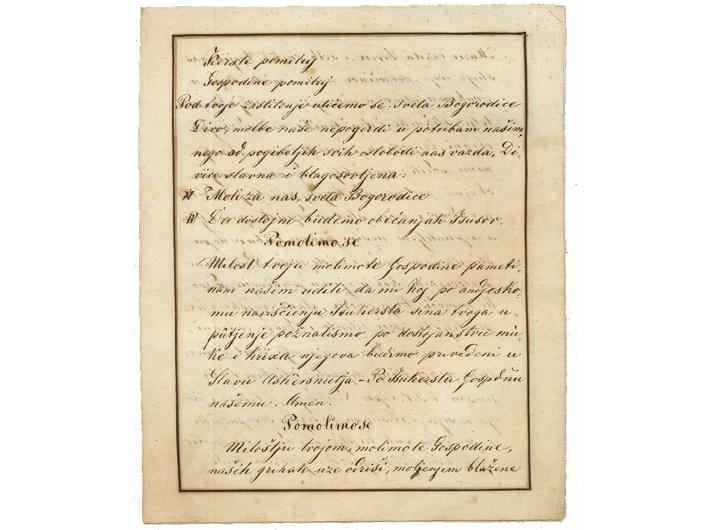 Kèrste pomiluj
Gospodine pomiluj
Pod tvoje zastitenje uticemo se sveta Bogorodice
Divo, molbe naše nepogerdi u potribam našim,
nego od pogibeljih svih oslobodi nas vazda, Di-
vice slavna i blagosovljena.
V Moli za nas sveta Bogorodice
R Da dostojni budemo obećanjah Isusov.
Pomolimo se
Milost tvoju molimote Gospodine pameti-
nam našim udili da mi koj po andjeosko-
mu navisćenju Isukersta sina tvoga u-
putjenje poznalismo po dostojanstvu mu-
ke i krixa njegova budimo privedeni u
Slavu Uskèrsnutja - Po Isukersta Gospdnu
našemu. Amen.
Pomolimose
Milostju tvojom, molimote Gospodine,
naših grihah uze odriši, moljenjem blažene